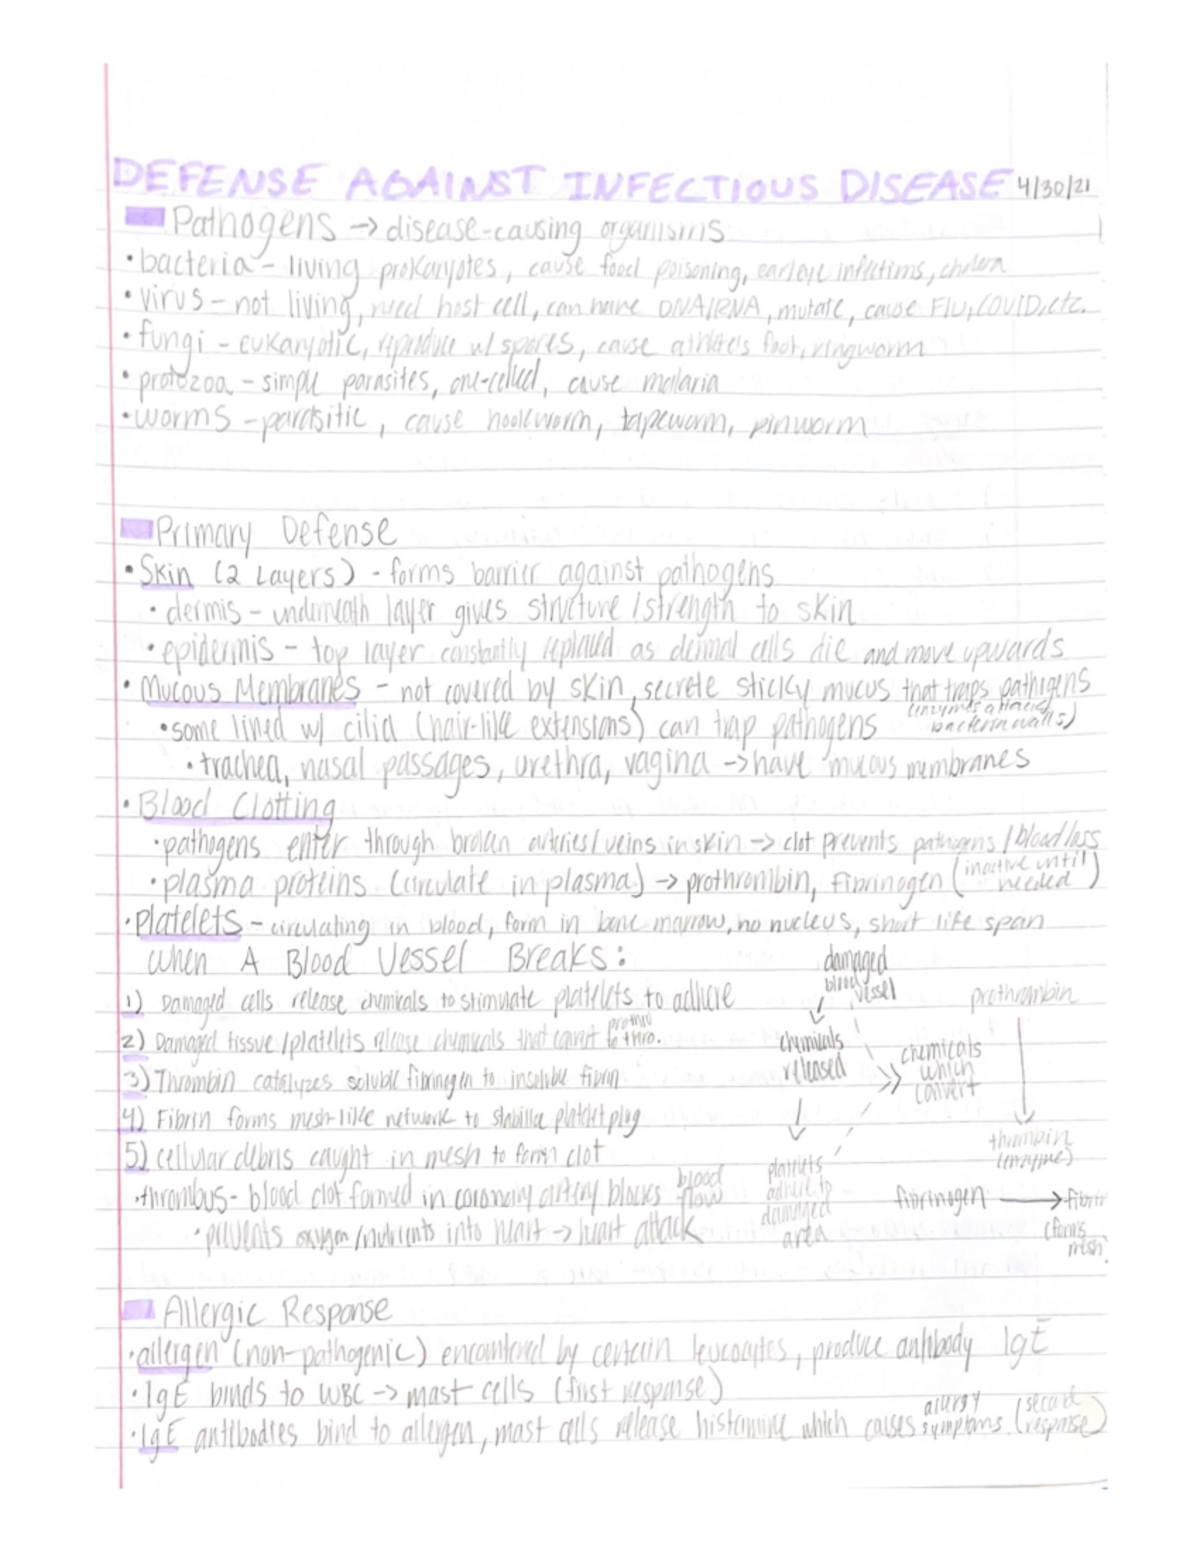 DEFENSE AGAINST INFECTIOUS DISEASE 4/30/21
Pathogens → disease-causing organisms
• bacteria - living prokaryotes, cause food poisoning, ear/eye infections, cholera
• virus - not living, need host cell, can have DNA/RNA, mutate, cause Flu, COVID, etc.
• fungi - eukaryotic, reproduce w/ spores, cause athlete's foot, ringworm
• protozoa - simple parasites, one-celled, cause malaria
• worms - parasitic, cause hookworm, tapeworm, pinworm
Primary Defense
• Skin (2 Layers) - forms barrier against pathogens
• dermis - underneath layer gives structure/strength to skin
• epidermis - top layer constantly replaced as dermal cells die and move upwards
• Mucous Membranes - not covered by skin, secrete sticky mucus that traps pathogens
(enzymes attack bacteria walls)
• some lined w/ cilia (hair-like extensions) can trap pathogens
• trachea, nasal passages, urethra, vagina → have mucous membranes
• Blood Clotting
• pathogens enter through broken arteries/veins in skin → clot prevents pathogens/blood loss
• plasma proteins (circulate in plasma) → prothrombin, Fibrinogen (inactive until needed)
• Platelets - circulating in blood, form in bone marrow, no nucleus, short life span
When A Blood Vessel Breaks:
1) Damaged cells release chemicals to stimulate platelets to adhere
2) Damaged tissue/platelets release chemicals that convert prothro to thro.
3) Thrombin catalyzes soluble fibrinogen to insoluble fibrin
4) Fibrin forms mesh-like network to stabilize platelet plug
5) cellular debris caught in mesh to form clot
• thrombus - blood clot formed in coronary artery blocks blood flow
• prevents oxygen/nutrients into heart → heart attack
damaged
blood vessel
chemicals
released
platelets
adhere to
damaged
area
chemicals
which
convert
prothrombin
thrombin
(enzyme)
fibrinogen → fibrin
(forms
mesh
Allergic Response
• allergen (non-pathogenic) encountered by certain leucocytes, produce antibody IgE
• IgE binds to WBC → mast cells (first response)
• IgE antibodies bind to allergen, mast cells release histamine which causes allergy symptoms (second response)